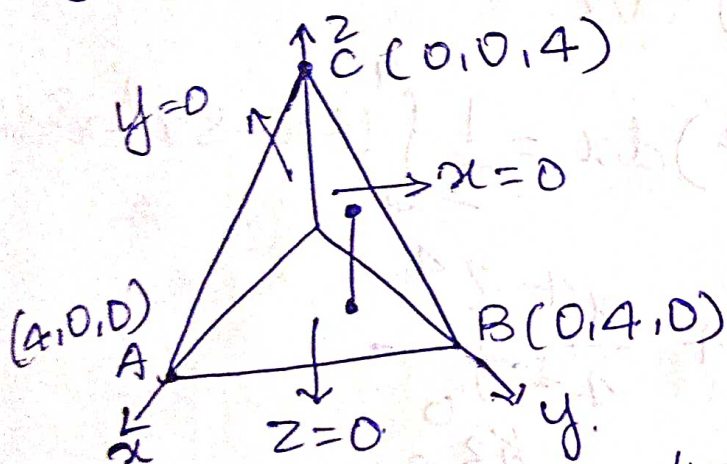 z
C (0,0,4)
y=0
x=0
(4,0,0)
A
B(0,4,0)
x
z=0
y.